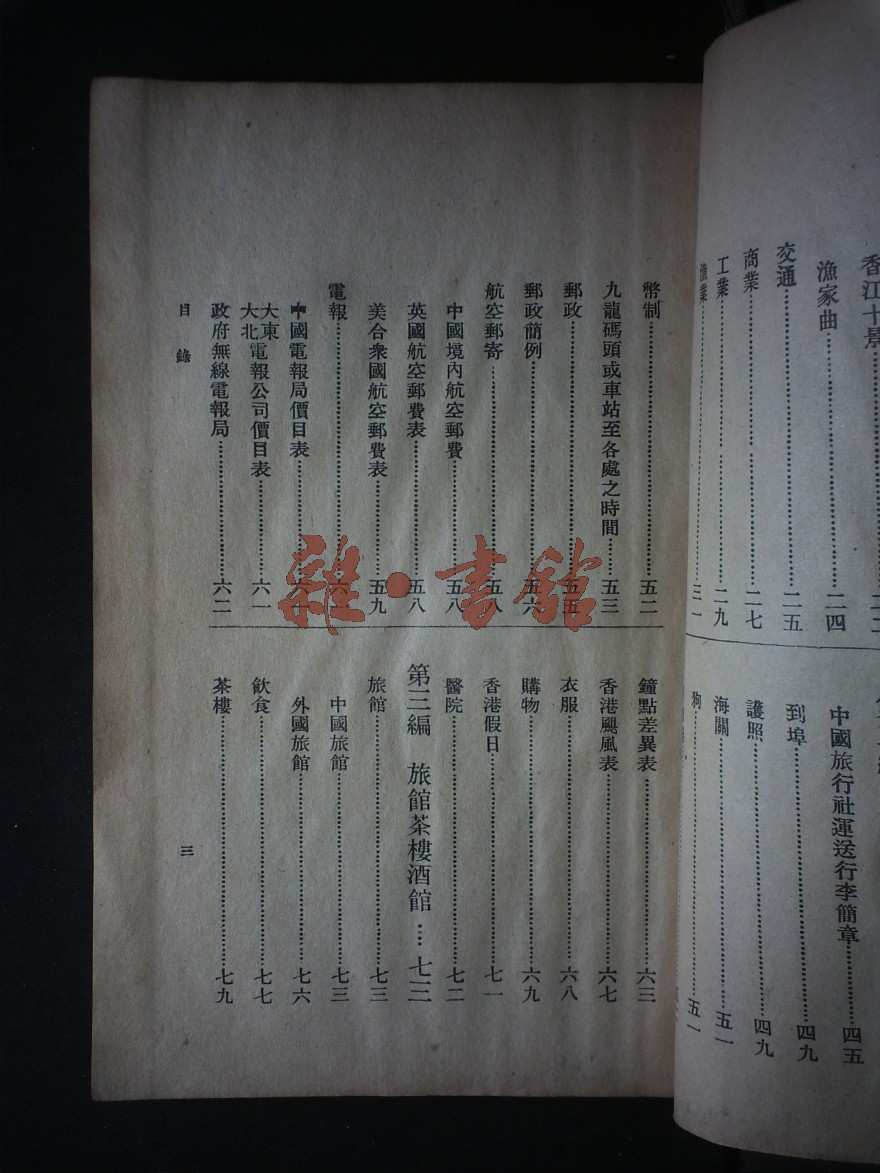 香江十景
漁家曲……二四
交通……二五
商業……二七
工業……二九
漁業……三一
中國旅行社運送行李簡章……四五
到埠……四九
護照……四九
海關……五一
狗……五一
幣制……五二
九龍碼頭或車站至各處之時間……五三
郵政……五五
郵政簡例……五六
航空郵寄……五八
中國境內航空郵費……五八
英國航空郵費表……五八
美合衆國航空郵費表……五九
電報……
中國電報局價目表……
大東
大北電報公司價目表……六一
政府無線電報局……六二
鐘點差異表……六三
香港颶風表……六七
衣服……六八
購物……六九
香港假日……七一
醫院……七二
第三編　旅館茶樓酒館……七三
旅館……七三
中國旅館……七三
外國旅館……七六
飲食……七七
茶樓……七九
目錄
三
雜·書館